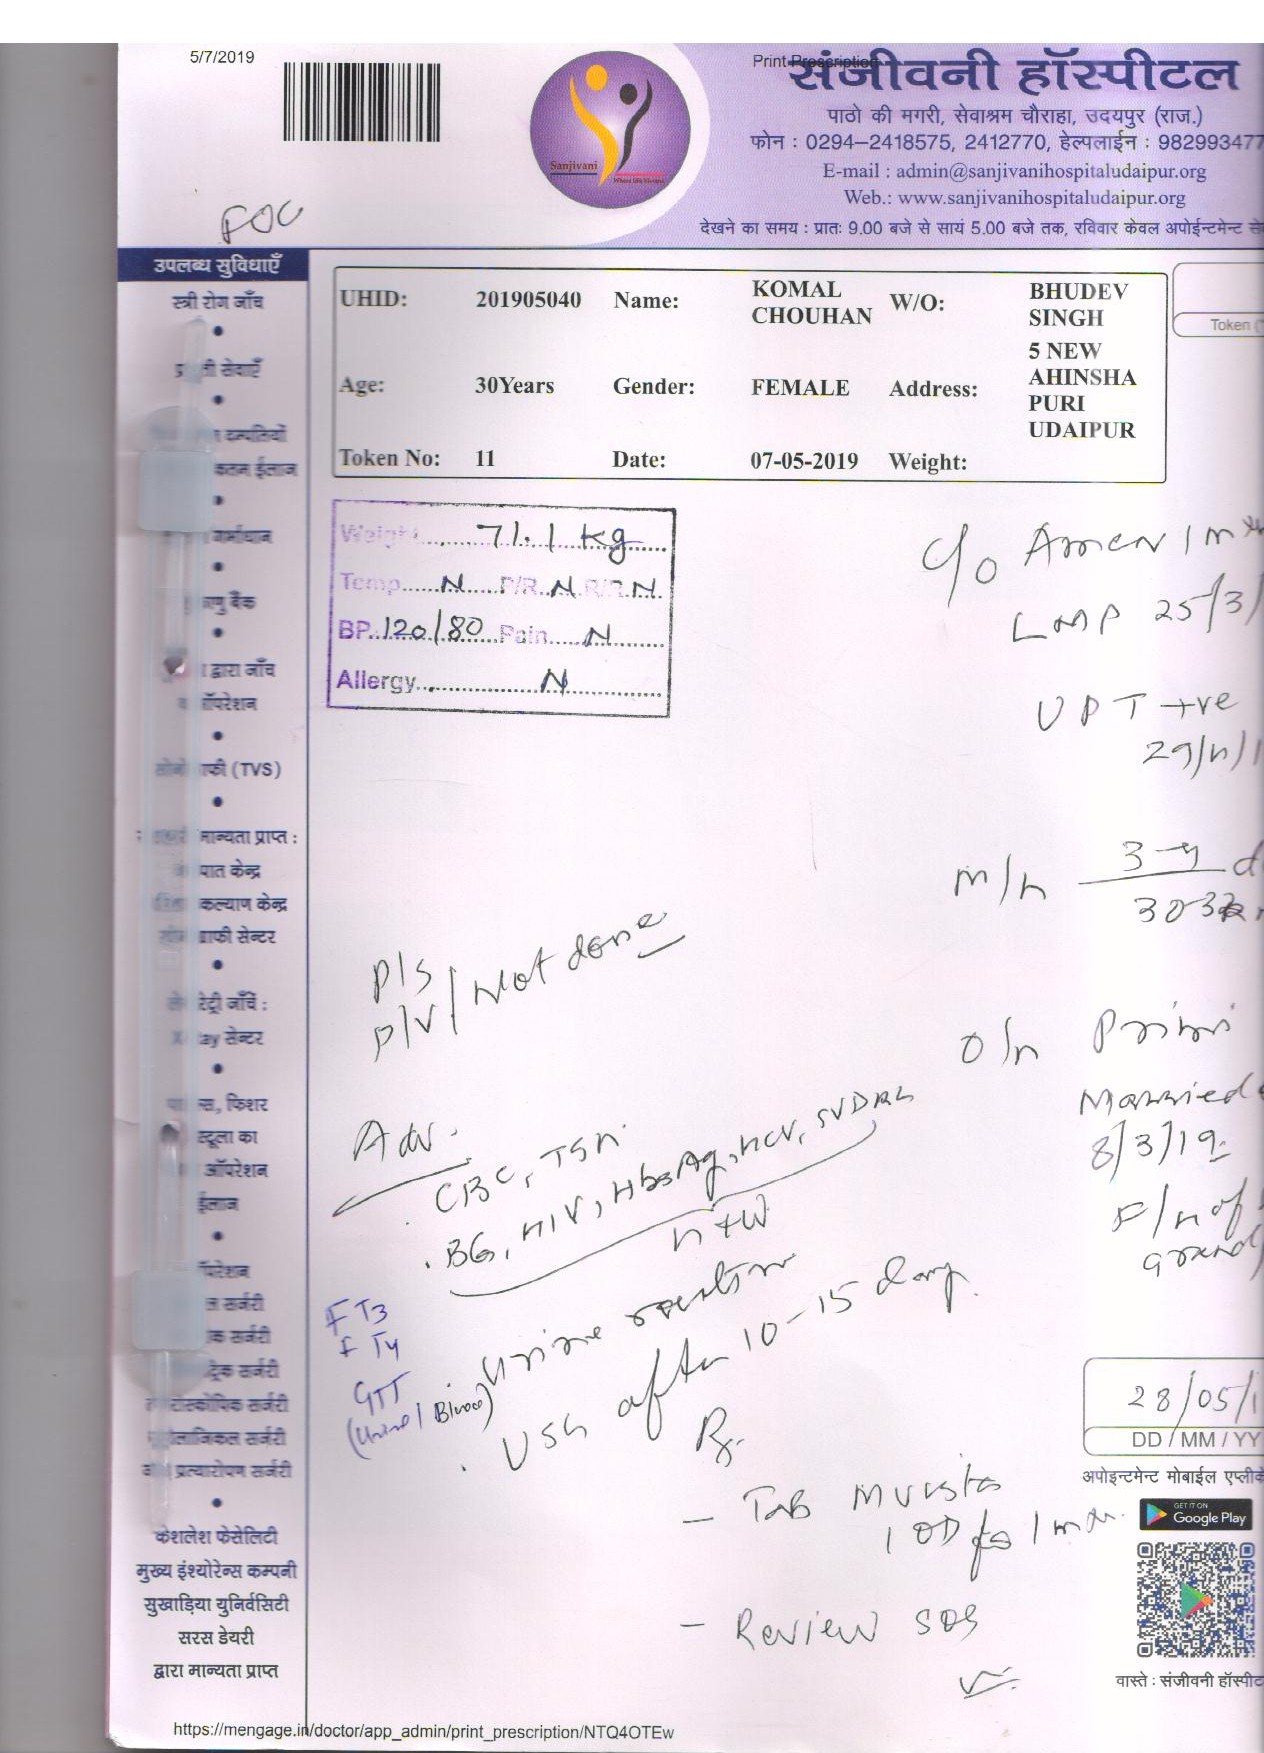 5/7/2019
Print Prescription
संजीवनी हॉस्पीटल
पाठो की मगरी, सेवाश्रम चौराहा, उदयपुर (राज.)
फोन : 0294–2418575, 2412770, हेल्पलाईन : 982993477
E-mail : admin@sanjivanihospitaludaipur.org
Web.: www.sanjivanihospitaludaipur.org
देखने का समय : प्रातः 9.00 बजे से सायं 5.00 बजे तक, रविवार केवल अपोईन्टमेन्ट से
Sanjivani
FOC
उपलब्ध सुविधाएँ
स्त्री रोग जाँच
सेवाएँ
दम्पतियों
ईलाज
गर्भाधान
बैंक
द्वारा जाँच
ऑपरेशन
(TVS)
मान्यता प्राप्त :
केन्द्र
कल्याण केन्द्र
सेन्टर
जाँचें :
सेन्टर
फिशर
का
ऑपरेशन
ईलाज
सर्जरी
सर्जरी
सर्जरी
सर्जरी
सर्जरी
सर्जरी
केशलेश फेसेलिटी
मुख्य इंश्योरेन्स कम्पनी
सुखाड़िया युनिर्वसिटी
सरस डेयरी
द्वारा मान्यता प्राप्त
UHID: 201905040 Name: KOMAL CHOUHAN W/O: BHUDEV SINGH
Age: 30Years Gender: FEMALE Address: 5 NEW AHINSHA PURI UDAIPUR
Token No: 11 Date: 07-05-2019 Weight:
Token
Weight 71.1 kg
Temp N P/R N R/R N
BP 120/80 Pain N
Allergy N
C/o Amen 1 m
LMP 25/3/
UPT +ve
29/4/1
m/h 3-4 d
30-32
P/S
P/V / Not done
O/h Primi
Married
8/3/19
F/h of
grand
Adv.
CBC, TSH
BG, HIV, HbsAg, HCV, SVDRL
H+W
FT3
FT4
GTT
(Urine / Blood)
Urine routine
USG after 10-15 days.
Rx
- Tab
1 OD for 1 mth.
- Review SOS
28/05/1
DD / MM / YY
अपोइन्टमेन्ट मोबाईल
GET IT ON
Google Play
वास्ते : संजीवनी
https://mengage.in/doctor/app_admin/print_prescription/NTQ4OTEw